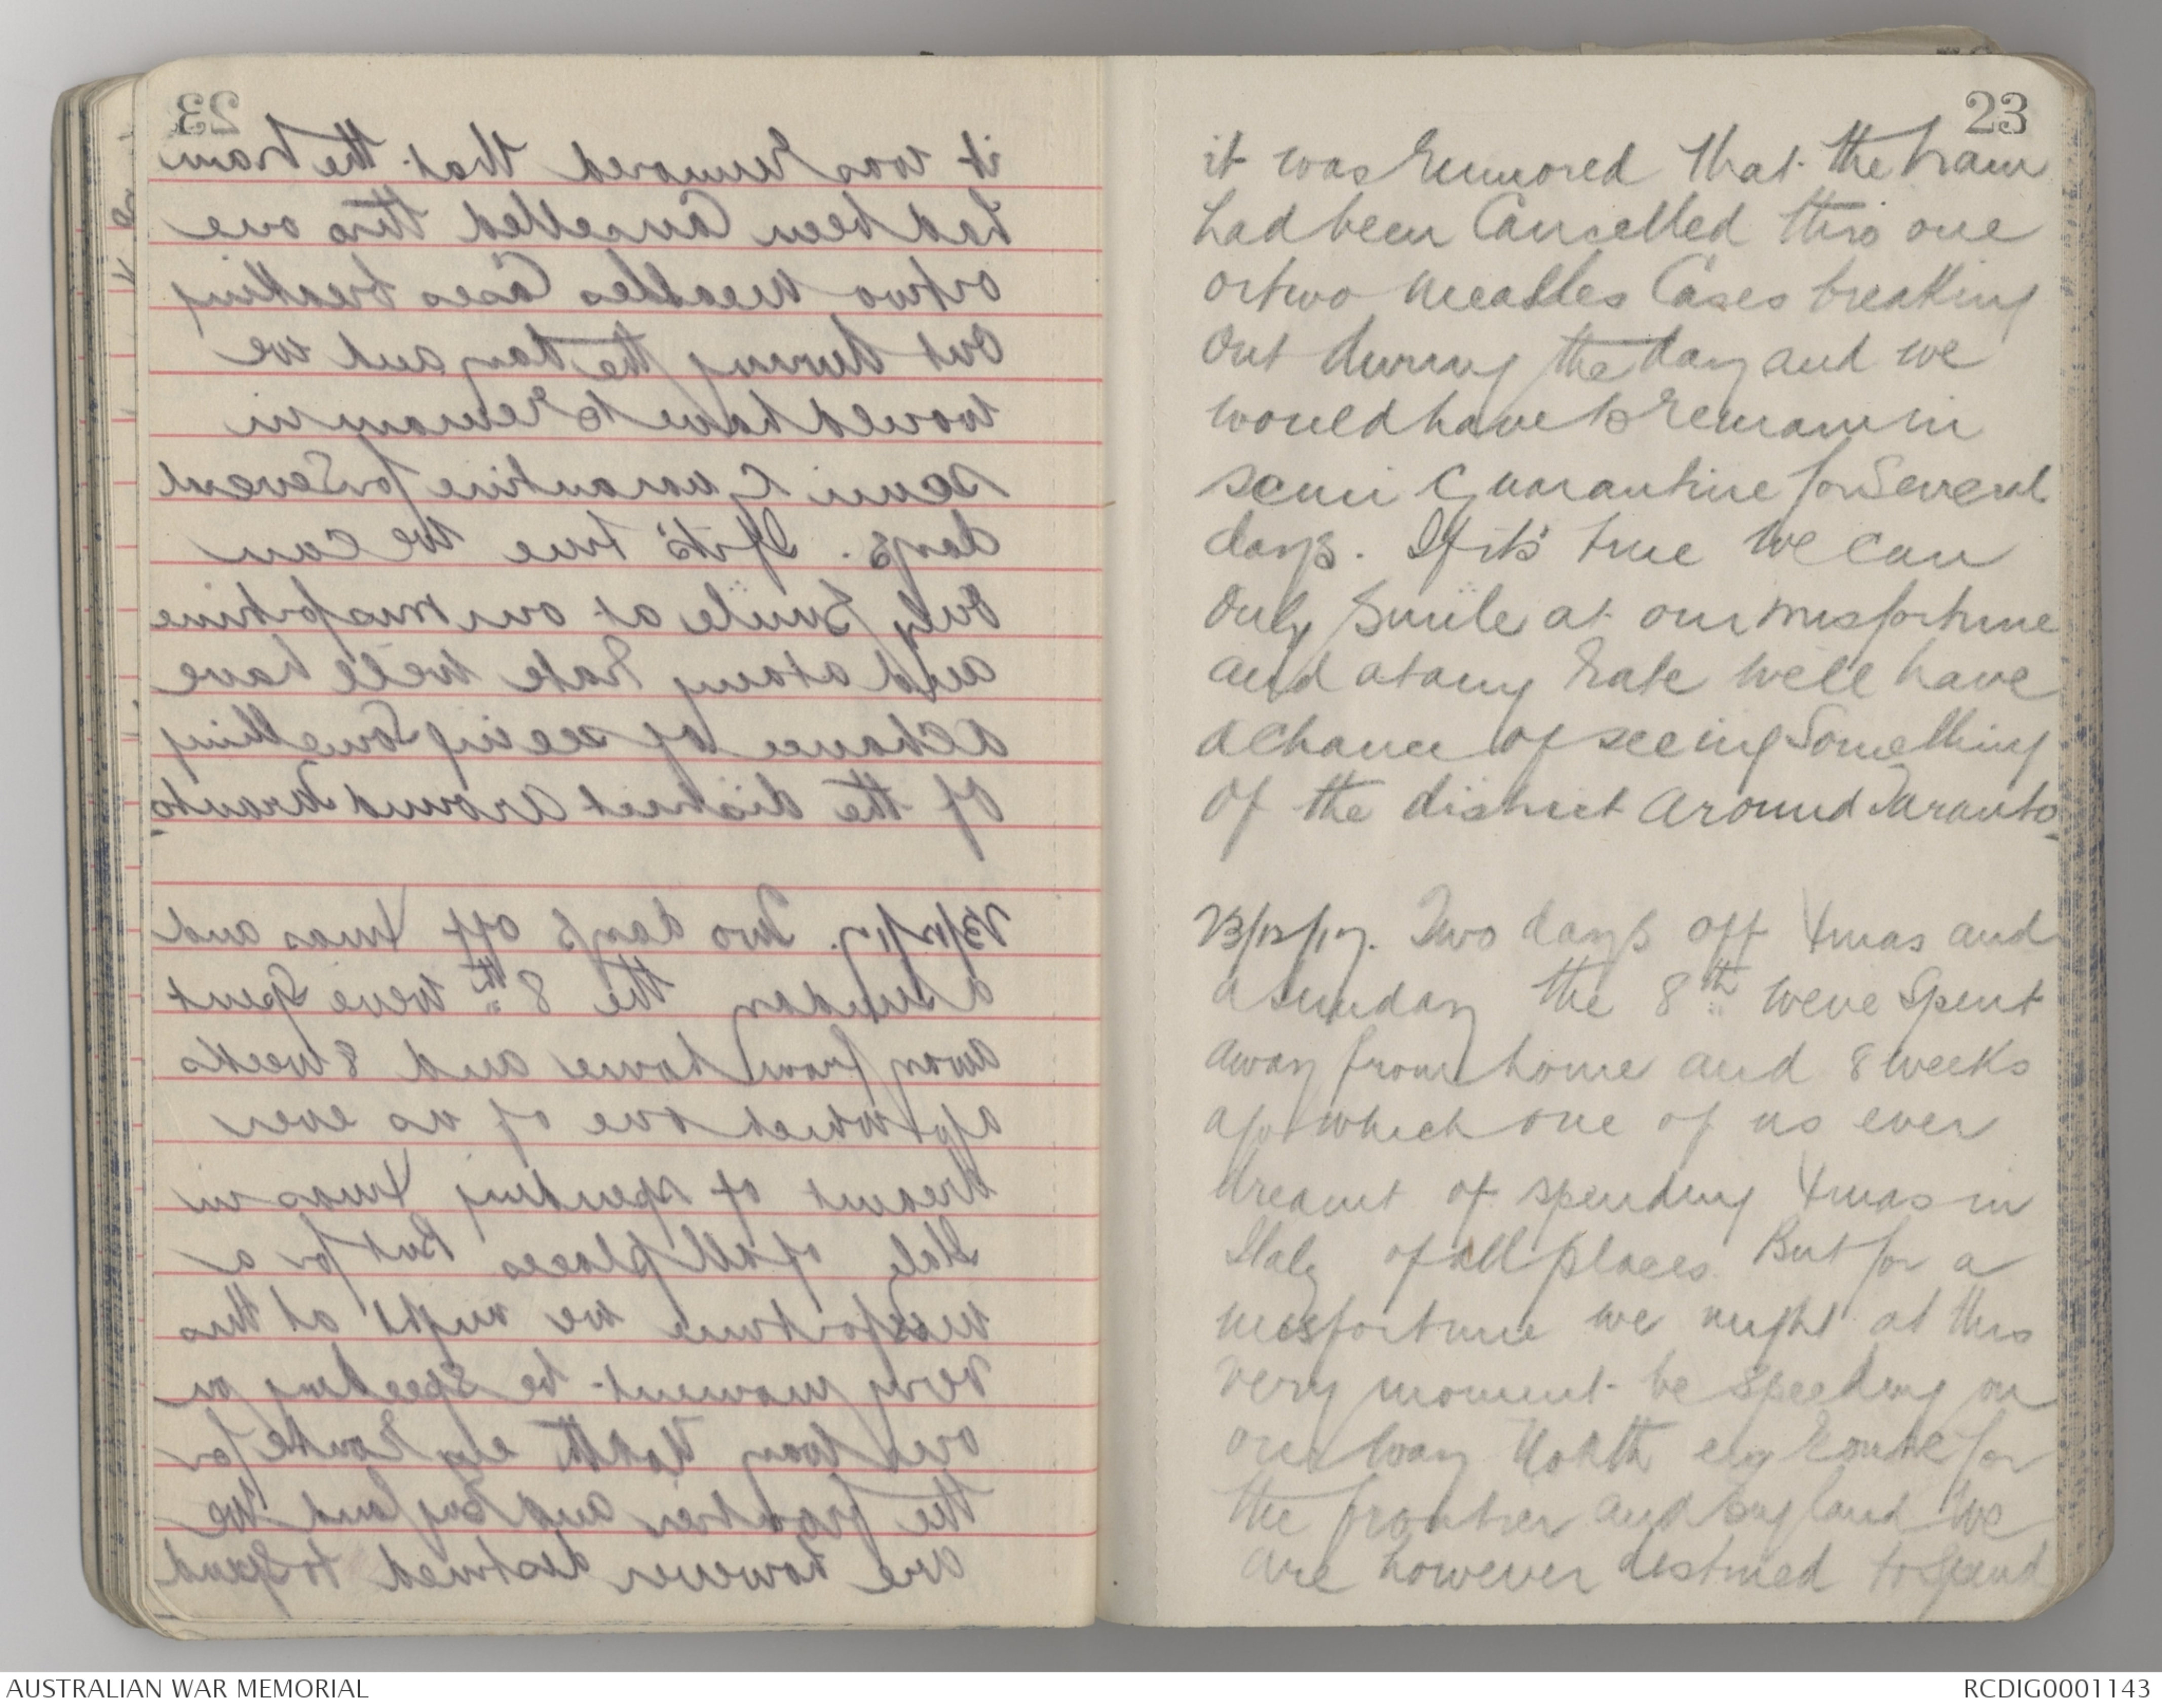 23
it was rumored that the train
had been Cancelled thro one
or two measles Cases breaking
Out during the day and we
would have to remain in
semi Quarantine for Several
days. If its' true we can
Only Smile at our misfortune
and at any rate we'll have
a chance of seeing Something
Of the district around Taranto.
23/12/17. Two days off Xmas and
a sunday the 8th were spent
away from home and 8 weeks
ago which one of us ever
dreamt of spending Xmas in
Italy of all places. But for a
misfortune we might at this
very moment be speeding on
our way North en route for
the frontier and England We
are however destined to spend
AUSTRALIAN WAR MEMORIAL
RCDIG0001143